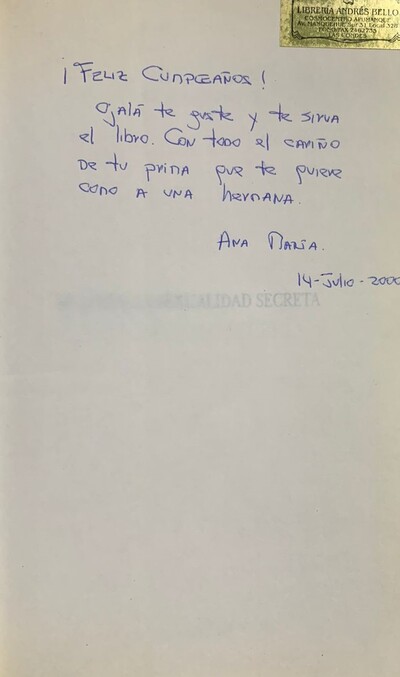 LIBRERÍA ANDRÉS BELLO
¡FELIZ CUMPLEAÑOS!
Ojalá te guste y te sirva
el libro. Con todo el cariño
de tu prima que te quiere
como a una hermana.
ANA MARÍA.
14-Julio-2000
ALIDAD SECRETA